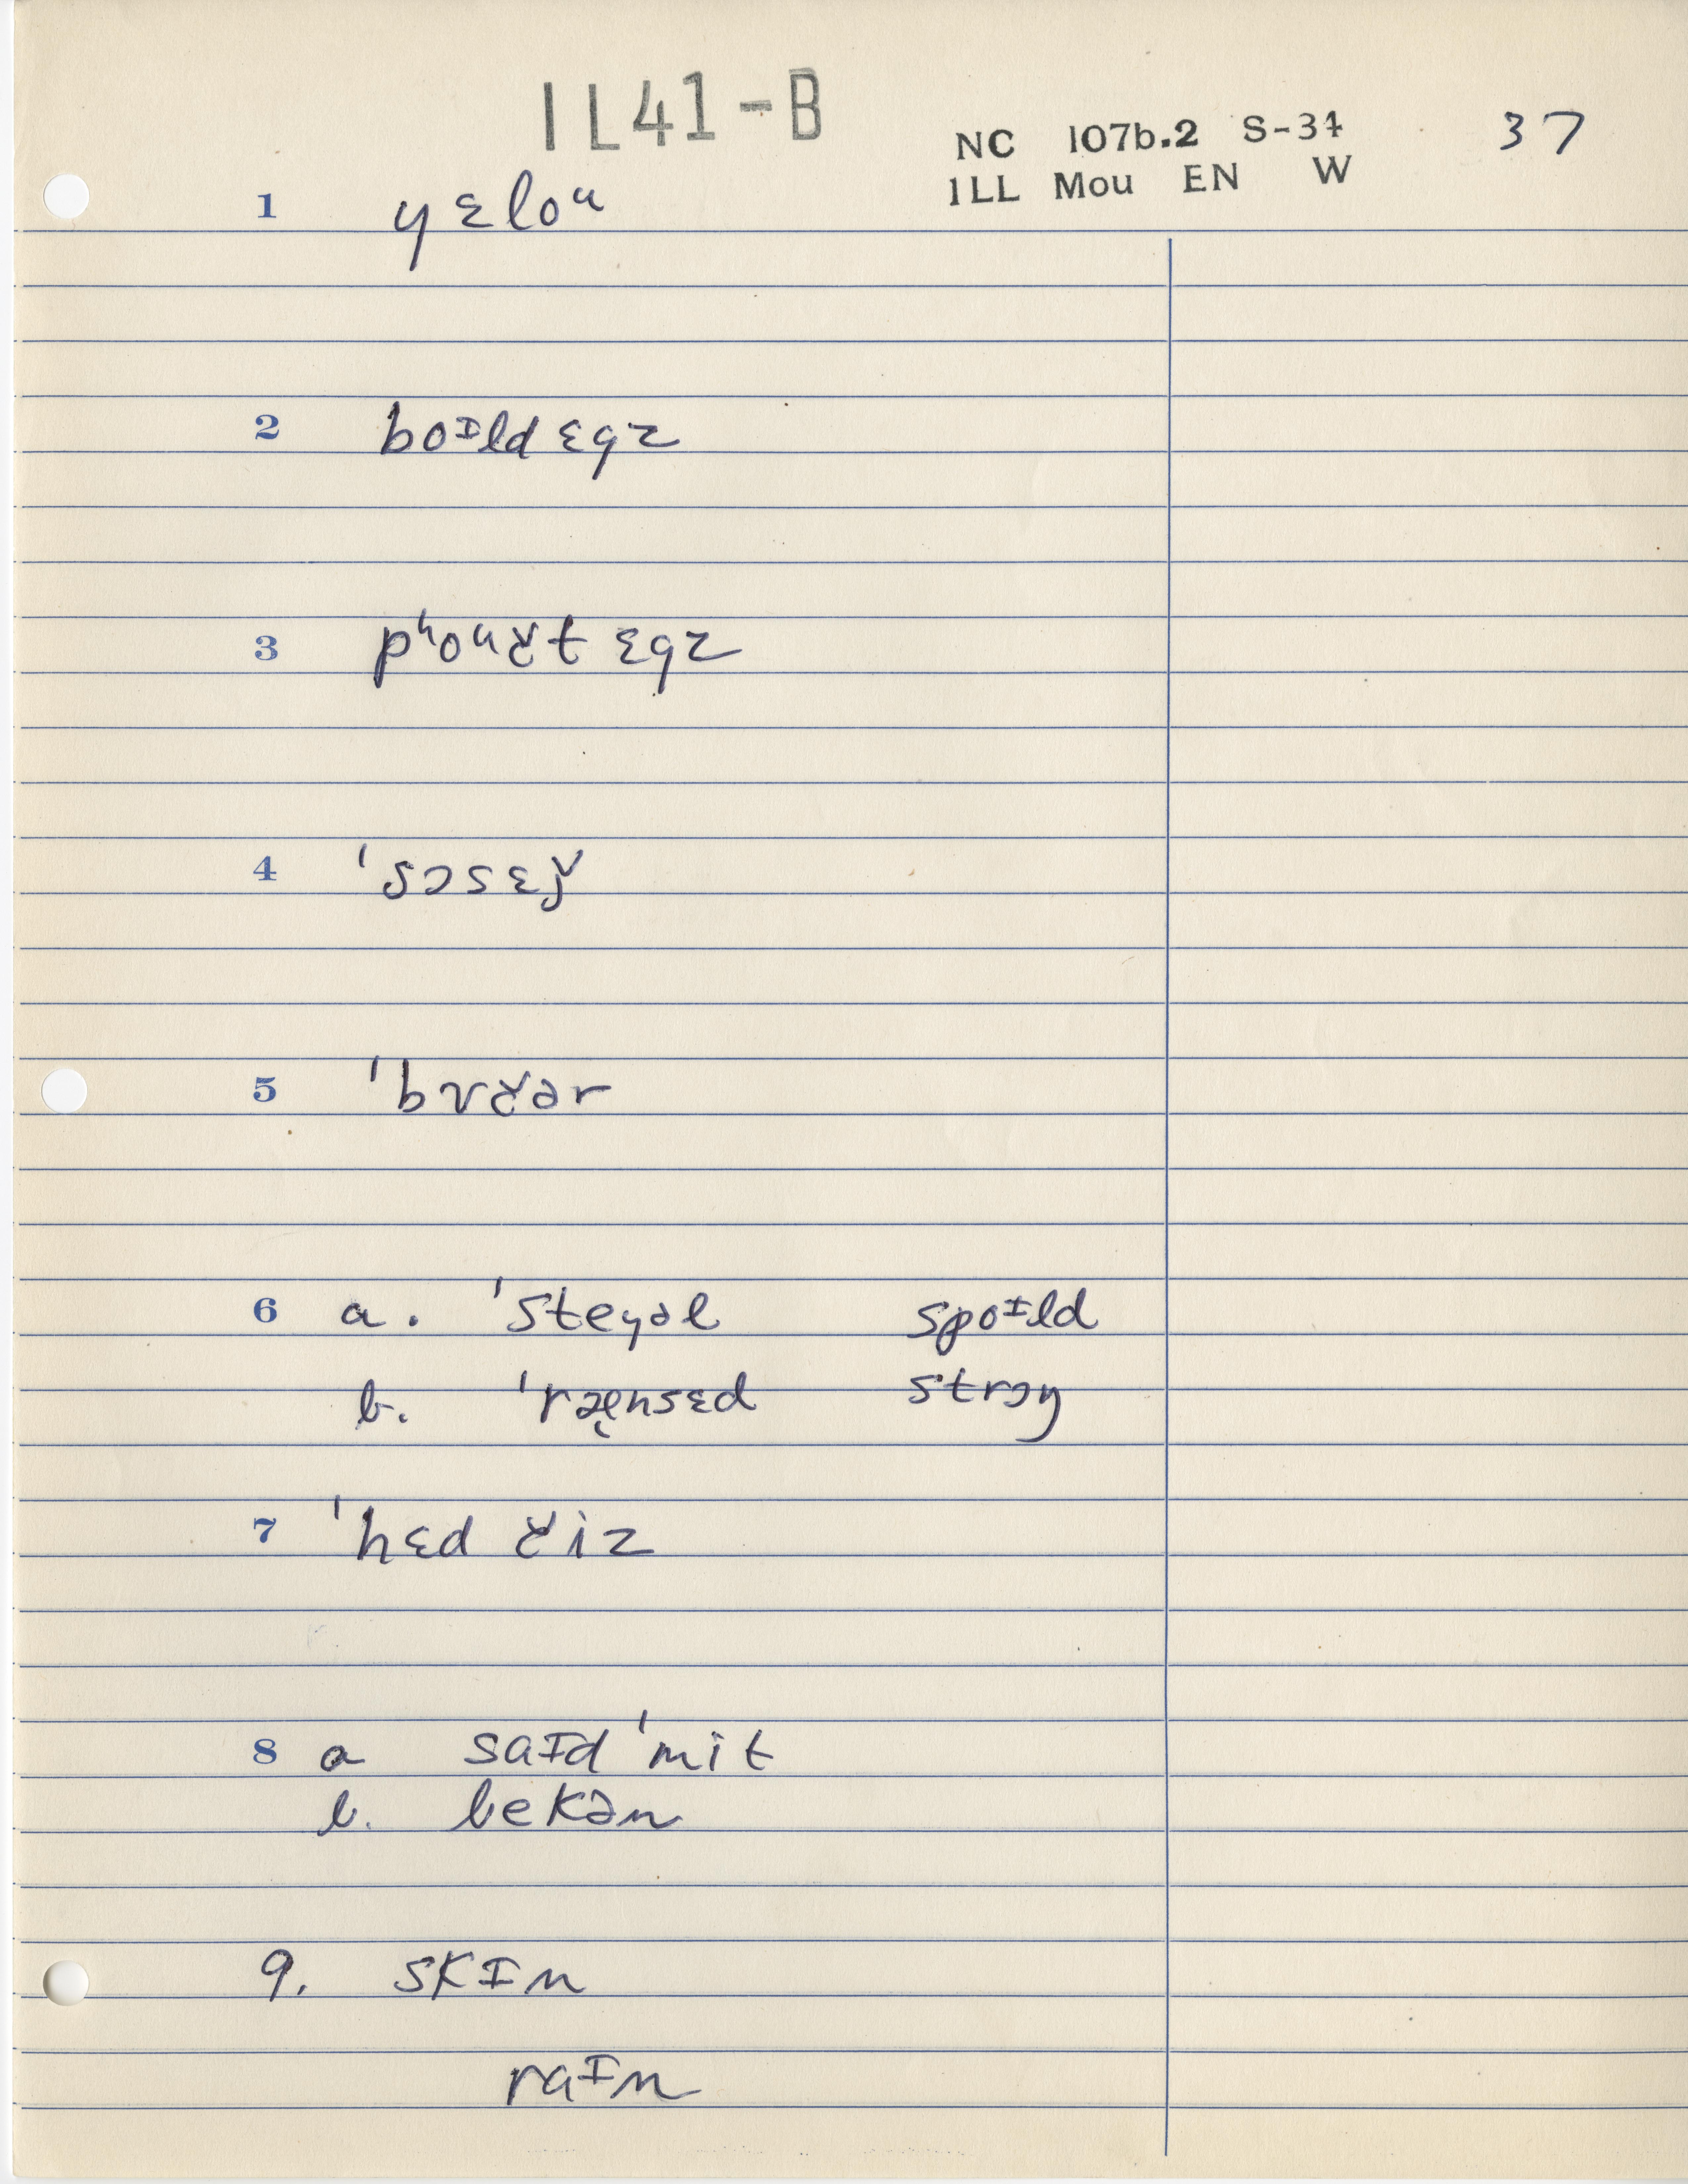 IL41-B
NC 107b.2 S-34 37
ILL Mou EN W
1 yɛloᵘ
2 boᶦld ɛgz
3 pʰoᵘʧt ɛgz
4 ˈsɔsɛʤ
5 ˈbʊʧər
6 a. ˈsteyəl spoᶦld
b. ˈræ̨nsɛd strɔŋ
7 ˈhɛd ʧiz
8 a saɪd ˈmit
b. bekən
9. skɪn
raᶦn